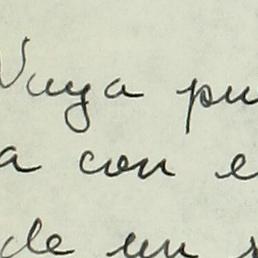 Vaya pu
a con e
de un s